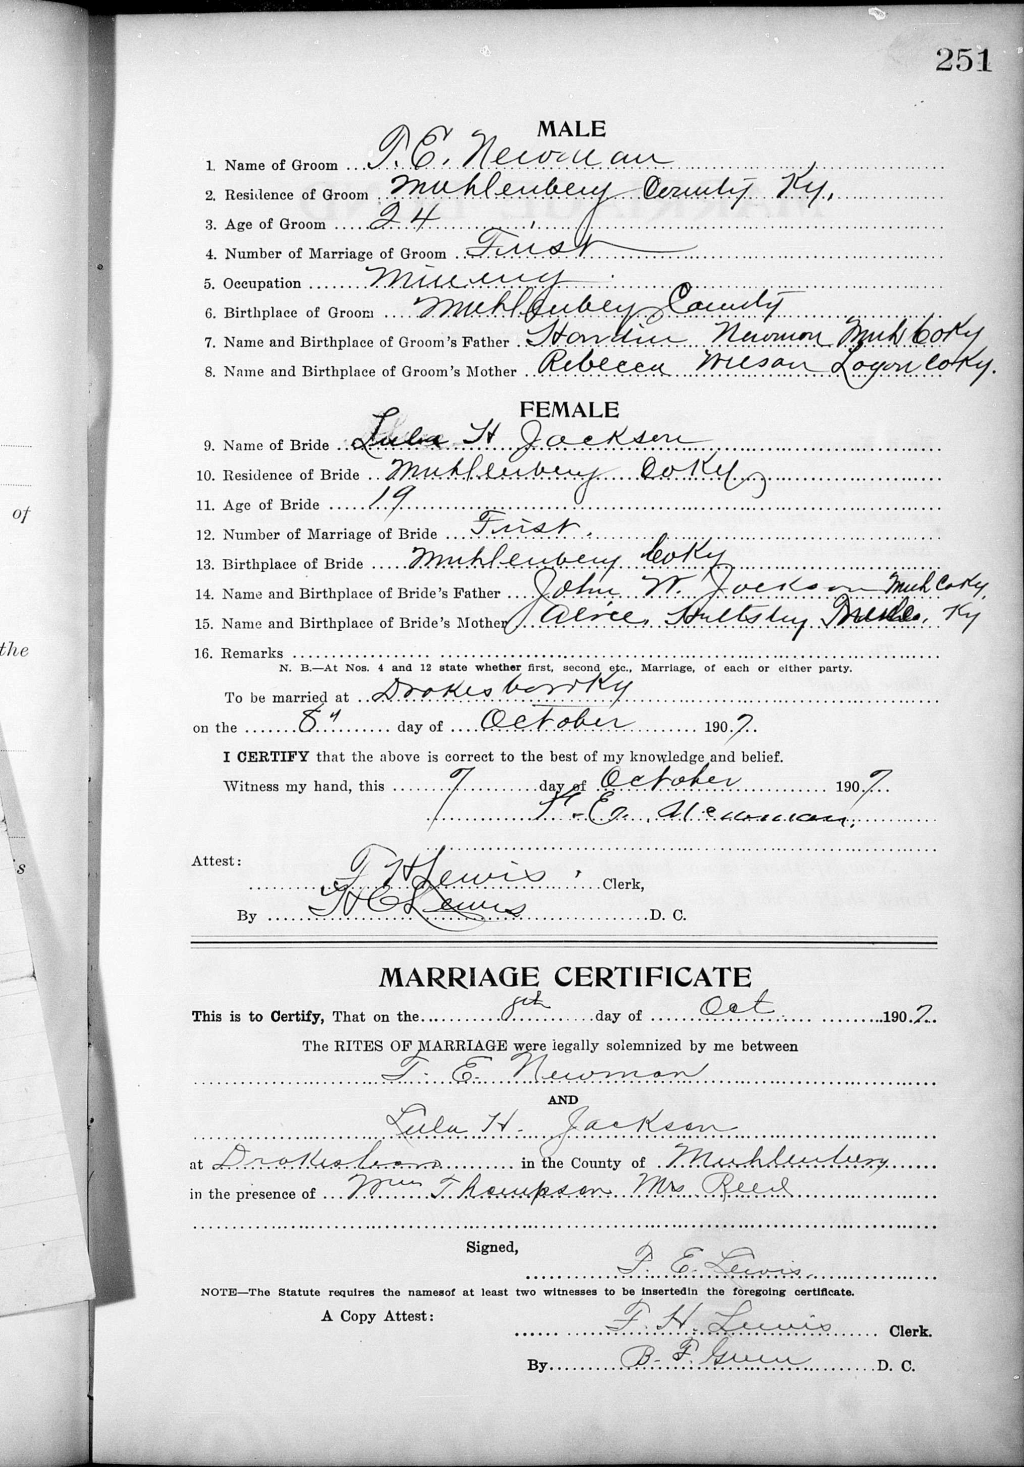 251
MALE
1. Name of Groom T. E. Newman
2. Residence of Groom Muhlenberg County Ky.
3. Age of Groom 24
4. Number of Marriage of Groom First
5. Occupation Mining
6. Birthplace of Groom Muhlenberg County
7. Name and Birthplace of Groom's Father Hardin Newman Muh Co Ky
8. Name and Birthplace of Groom's Mother Rebecca Wilson Logan Co Ky.
FEMALE
9. Name of Bride Lula H Jackson
10. Residence of Bride Muhlenberg Co Ky
11. Age of Bride 19
12. Number of Marriage of Bride First.
13. Birthplace of Bride Muhlenberg Co Ky
of
14. Name and Birthplace of Bride's Father John W. Jackson Muh Co Ky.
15. Name and Birthplace of Bride's Mother Alice Ky
the
16. Remarks
N. B.—At Nos. 4 and 12 state whether first, second etc., Marriage, of each or either party.
To be married at Drakesboro Ky
on the 8" day of October 1907.
I CERTIFY that the above is correct to the best of my knowledge and belief.
Witness my hand, this 7 day of October 1907.
T. E. Newman.
Attest:
's
T H Lewis Clerk,
By Lewis D. C.
MARRIAGE CERTIFICATE
This is to Certify, That on the 8th day of Oct 1907.
The RITES OF MARRIAGE were legally solemnized by me between
T. E. Newman
AND
Lula H. Jackson
at Drakesboro in the County of Muhlenberg
in the presence of Wm Thompson Mrs Reed
Signed,
F. E. Lewis.
NOTE—The Statute requires the namesof at least two witnesses to be insertedin the foregoing certificate.
A Copy Attest:
T. H. Lewis Clerk.
By B. F. Green D. C.